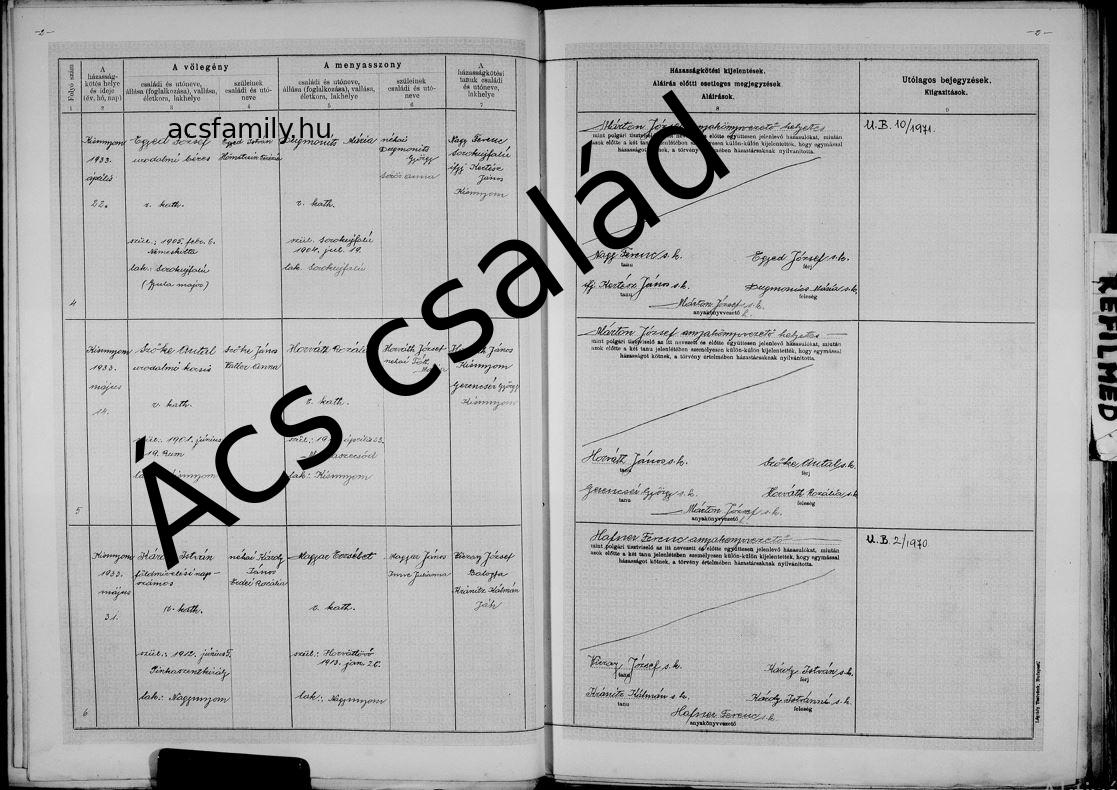 -2-
-2-
Folyó szám
A házasság-
kötés helye
és ideje
(év, hó, nap)
A vőlegény
családi és utóneve,
állása (foglalkozása), vallása,
életkora, lakhelye
szüleinek
családi és utó-
neve
A menyasszony
családi és utóneve,
állása (foglalkozása), vallása,
életkora, lakhelye
szüleinek
családi és utó-
neve
A
házasságkötési
tanuk családi
és utóneve,
lakhelye
Házasságkötési kijelentések.
Aláírás előtti esetleges megjegyzések
Aláírások.
Utólagos bejegyzések.
Kiigazítások.
1 2 3 4 5 6 7 8 9
acsfamily.hu
Ács család
Kisunyom
1933.
április
22.
Egyed József
uradalmi béres
r. kath.
szül.: 1905. febr. 6.
Nemeskolta
lak.: Sorokujfalu
(Gyula major)
4
Egyed István
Mária
r. kath.
szül. Sorokujfalu
1904. jul. 19.
lak. Sorokujfalu
néhai
György
Anna
Nagy Ferenc
Sorokujfalu
ifj. Kertész
János
Kisunyom
Márton József anyakönyvvezető helyettes
mint polgári tisztviselő
azok előtte a két tanu jelenlétében személyesen külön-külön kijelentették, hogy egymással
házasságot kötnek, a törvény értelmében házastársaknak nyilvánította.
Nagy Ferenc s.k.
tanu
Egyed József s.k.
férj
ifj Kertész János s.k.
tanu
Mária s.k.
feleség
Márton József s.
k.
anyakönyvvezető
U.B. 10/1971.
Kisunyom
1933.
május
14.
Szőke Antal
uradalmi kocsis
r. kath.
szül.: 1901. június
19.
5
Szőke János
Anna
Horváth
r. kath.
szül.: április 23.
lak: Kisunyom
Horváth József
néhai Tóth
János
Kisunyom
Gerencsér György
Kisunyom
Márton József anyakönyvvezető helyettes
mint polgári tisztviselő az itt nevezett és előtte együttesen jelenlévő házasulókat, miután
azok előtte a két tanu jelenlétében személyesen külön-külön kijelentették, hogy egymással
házasságot kötnek, a törvény értelmében házastársaknak nyilvánította.
Horváth János s.k.
tanu
Szőke Antal s.k.
férj
Gerencsér György s.k.
tanu
Horváth Rozália s.k.
feleség
Márton József s.k.
anyakönyvvezető
Kisunyom
1933.
május
31.
István
földművelési nap-
számos
r. kath.
szül.: 1912. június
Pinkaszentkirály
lak.: Nagyunyom
6
néhai Károly
János
Rozália
Magyar Erzsébet
r. kath.
szül.: Horvátlövő
1913. jan. 26.
lak.: Nagyunyom
Magyar János
Imre Julianna
József
Balogfa
Kránitz Kálmán
Ják
Hafner Ferenc anyakönyvvezető
mint polgári tisztviselő az itt nevezett és előtte együttesen jelenlévő házasulókat, miután
azok előtte a két tanu jelenlétében személyesen külön-külön kijelentették, hogy egymással
házasságot kötnek, a törvény értelmében házastársaknak nyilvánította.
József s.k.
tanu
Károly István s.k.
férj
Kránitz Kálmán s.k.
tanu
Károly Istvánné s.k.
feleség
Hafner Ferenc s.k.
anyakönyvvezető
U.B. 2/1970.
REFILMED